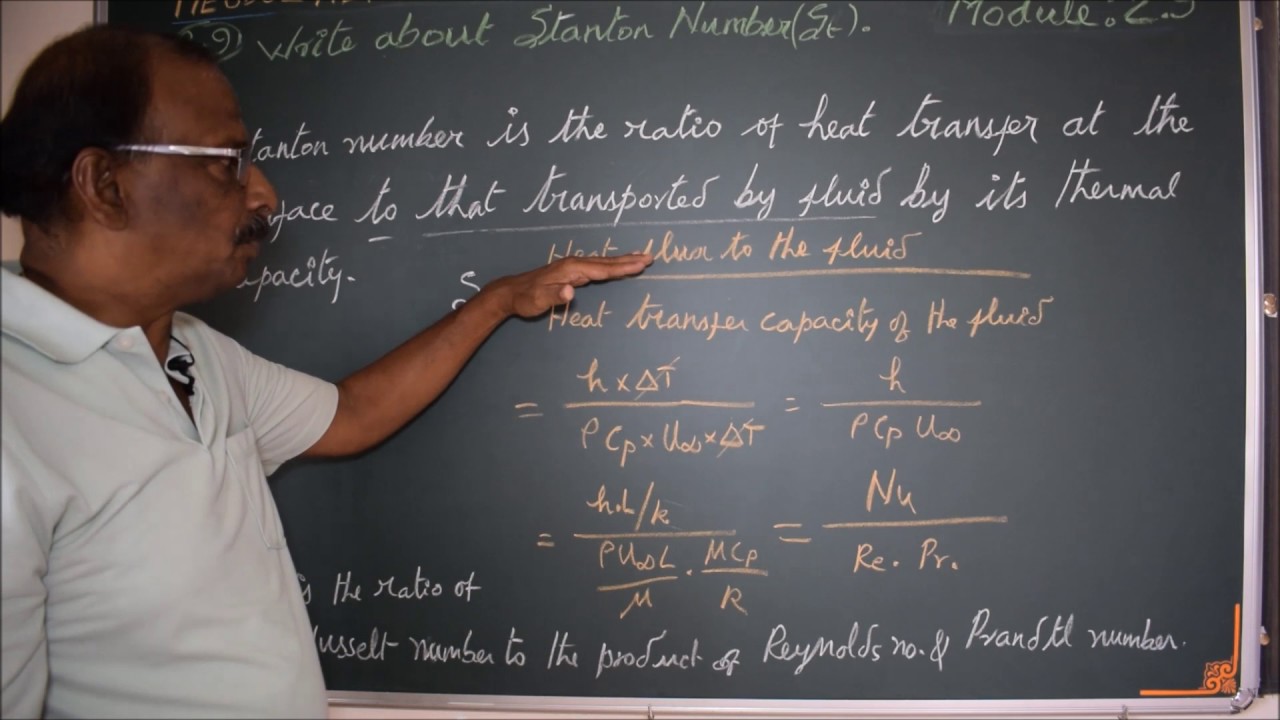 9) Write about Stanton Number(St). Module: 2.9
tanton number is the ratio of heat transfer at the
face to that transported by fluid by its thermal
pacity.
Heat flux to the fluid
Heat transfer capacity of the fluid
= h × ΔT / ρ Cp × U∞ × ΔT = h / ρ Cp U∞
= h.L/k / ρU∞L/μ . μCp/k = Nu / Re. Pr.
s the ratio of
usselt number to the product of Reynolds no. & Prandtl number.